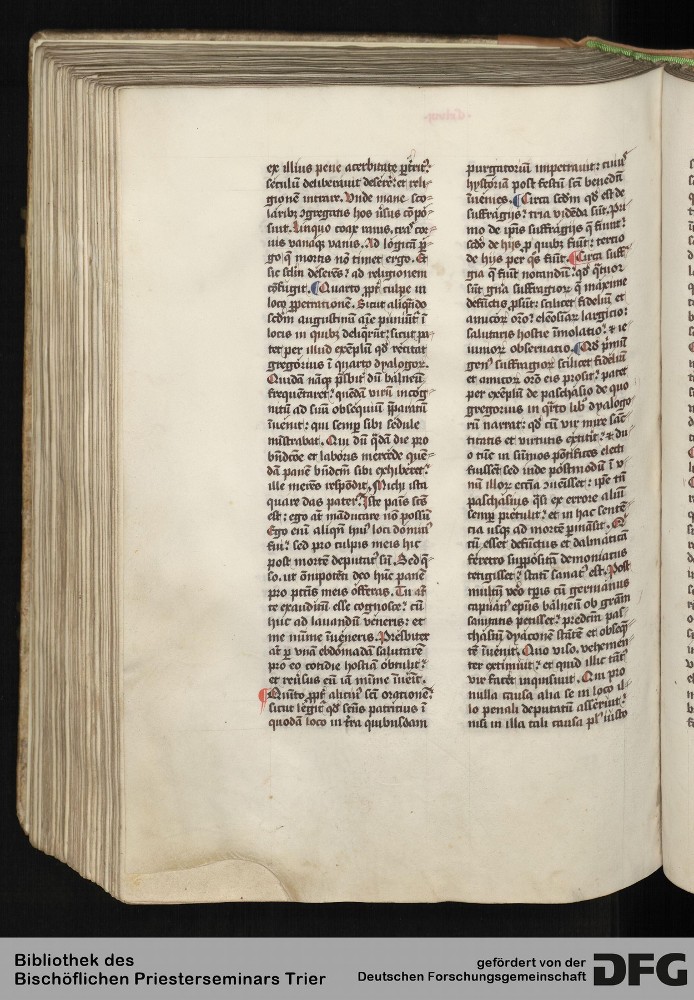 ex illius pene acerbitate ꝑt̃rit⁊
seculũ deliberauit deser̃e⁊ et reli-
gionẽ intrare. Vnde mane sco-
larib⁊ ꝯgregatis hos ũsus cõpo-
suit. Linquo coax ranis, cra cor-
uis vanaqꝫ vanis. Ad logicã ꝑ-
go q̃ mortis nõ timet ergo. Et
sic sclm̃ deserẽs⁊ ad religionem
cõfugit. Quarto ꝓpt̃ culpe in
loco ꝑpetrationẽ. Sicut aliqñdo
scdm̃ augustinũ aĩe puniunt̃ ĩ
locis in quibꝫ deliq̃rũt⁊ sicut pa-
tet per illud exẽplũ qd̃ recitat
gregorius ĩ quarto dyalogor̃.
Quidã nãqꝫ p̃sbit̃ dũ balneũ
frequẽtaret⁊ quẽdã virũ incog-
nitũ ad suũ obsequiũ p̃paratũ
ĩuenit⁊ qui semꝑ sibi sedule
mĩstrabat. Qui dũ q̃dã die pro
bñdcõe et laboris mercede quẽ-
dã panẽ bñdcm̃ sibi exhiberet⁊
ille merẽs respõdit, Michi ista
quare das pater⁊ Iste panis scũs
est⁊ ego aũt mãducare nõ possũ
Ego eñi aliqñ huiꝰ loci dominꝰ
fui⁊ sed pro culpis meis hic
post mortẽ deputatꝰ sũ. Sed q̃-
so, ut oĩpotẽti deo hũc panẽ
pro pctĩs meis offeras. Tu aũt
te exauditũ esse cognosce⁊ cũ
huc ad lauandũ veneris⁊ et
me mĩme ĩueneris. Presbiter
aũt ꝑ vnã ebdomadã salutarẽ
pro eo cotidie hostiã obtulit⁊
et reũsus eũ iã mĩme ĩuenit.
Quĩto ꝓpt̃ alicuiꝰ scĩ orationẽ⁊
sicut legit̃ qd̃ scũs patricius ĩ
quodã loco in t̃ra quibusdam
purgatoriũ impetrauit⁊ cuiꝰ
hystoriã post festũ scĩ benedcĩ
ĩuenies. Circa scdm̃ qd̃ est de
suffragijs⁊ tria vidẽda sũt, Pri
mo de ip̃is suffragijs q̃ fiunt⁊
scdo de hijs ꝓ quibꝫ fiũt⁊ tercio
de hijs per q̃s fiũt. Circa suff̃-
gia q̃ fiũt notandũ⁊ qd̃ q̃tuor
sũt gña suffragior̃ q̃ maxime
defũctis ꝓsũt⁊ scilicet fideliũ et
amicor̃ or̃o⁊ elẽosiar̃ largicio⁊
salutaris hostie ĩmolatio⁊ ⁊ ie-
iunior̃ obseruatio. Qd̃ p̃mũ
genꝰ suffragior̃ scilicet fideliũ
et amicor̃ or̃o eis prosit⁊ patet
per exẽplũ de paschasio de quo
gregorius in q̃rto lib̃ dyalogo
rũ narrat⁊ qd̃ cũ vir mire sãc-
titatis et virtutis extitit̃⁊ ⁊ du-
o tũc in sũmos põtifices elecũ
fuissẽt sed inde postmodũ ĩ v-
nũ illor̃ ecc̃ia ꝯuẽisset⁊ ip̃e tñ
paschasius q̃si ex errore aliũ
semꝑ p̃tulit⁊ et in hac sentẽ-
cia usqꝫ ad mortẽ ꝑmãsit. Q
cũ esset defũctus et dalmaticã
feretro suppõitã demoniatus
tetigisset⁊ statĩ sanatꝰ est. Post
multũ vero tp̃is cũ germanus
capuanꝰ ep̃us balneũ ob grãm
sanitatis petisset⁊ p̃dcm̃ pas-
chasiũ dyaconẽ stãtẽ et obseq̃n-
tẽ ĩuenit. Quo viso, vehemen-
ter extimuit⁊ et quid illic tãtꝰ
vir facẽt inquisiuit. Qui pro
nulla causa alia se in loco il-
lo penali deputatũ asseruit⁊
nisi in illa tali causa plꝰ iusto
Bibliothek des
Bischöflichen Priesterseminars Trier
gefördert von der
Deutschen Forschungsgemeinschaft
DFG